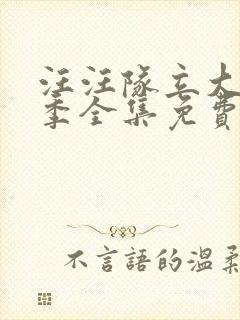 汪汪隊立大
季全集免費
不言語的溫柔